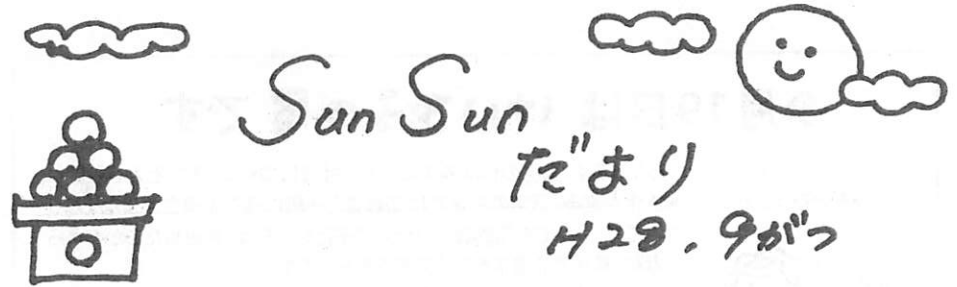 Sun Sun
だより
H28.9がつ